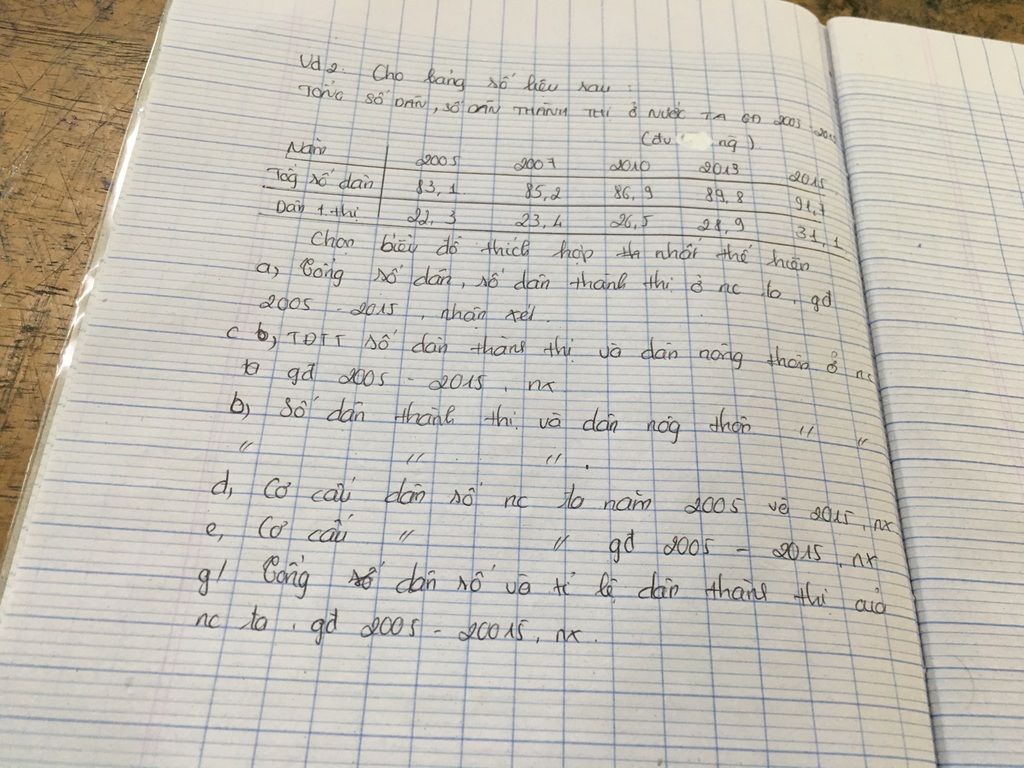 Vd 2. Cho bảng số liệu sau :
TỔNG SỐ DÂN, SỐ DÂN THÀNH THỊ Ở NƯỚC TA GĐ 2005 - 2015
(đv ng)
Năm 2005 2007 2010 2013 2015
Tổg số dân 83,1 85,2 86,9 89,8 91,7
Dân t.thị 22,3 23,4 26,5 28,9 31,1
Chọn biểu đồ thích hợp th nhất thể hiện
a, Tổng số dân, số dân thành thị ở nc ta. gđ
2005 - 2015, nhận xét.
c b, TĐTT số dân thành thị và dân nông thôn ở nc
ta gđ 2005 - 2015, nx
b, Số dân thành thị và dân nôg thôn " "
" " " .
d, Cơ cấu dân số nc ta năm 2005 và 2015, nx
e, Cơ cấu " " gđ 2005 - 2015, nx
g/ Tổng số dân số và tỉ lệ dân thành thị của
nc ta. gđ 2005 - 20015, nx.